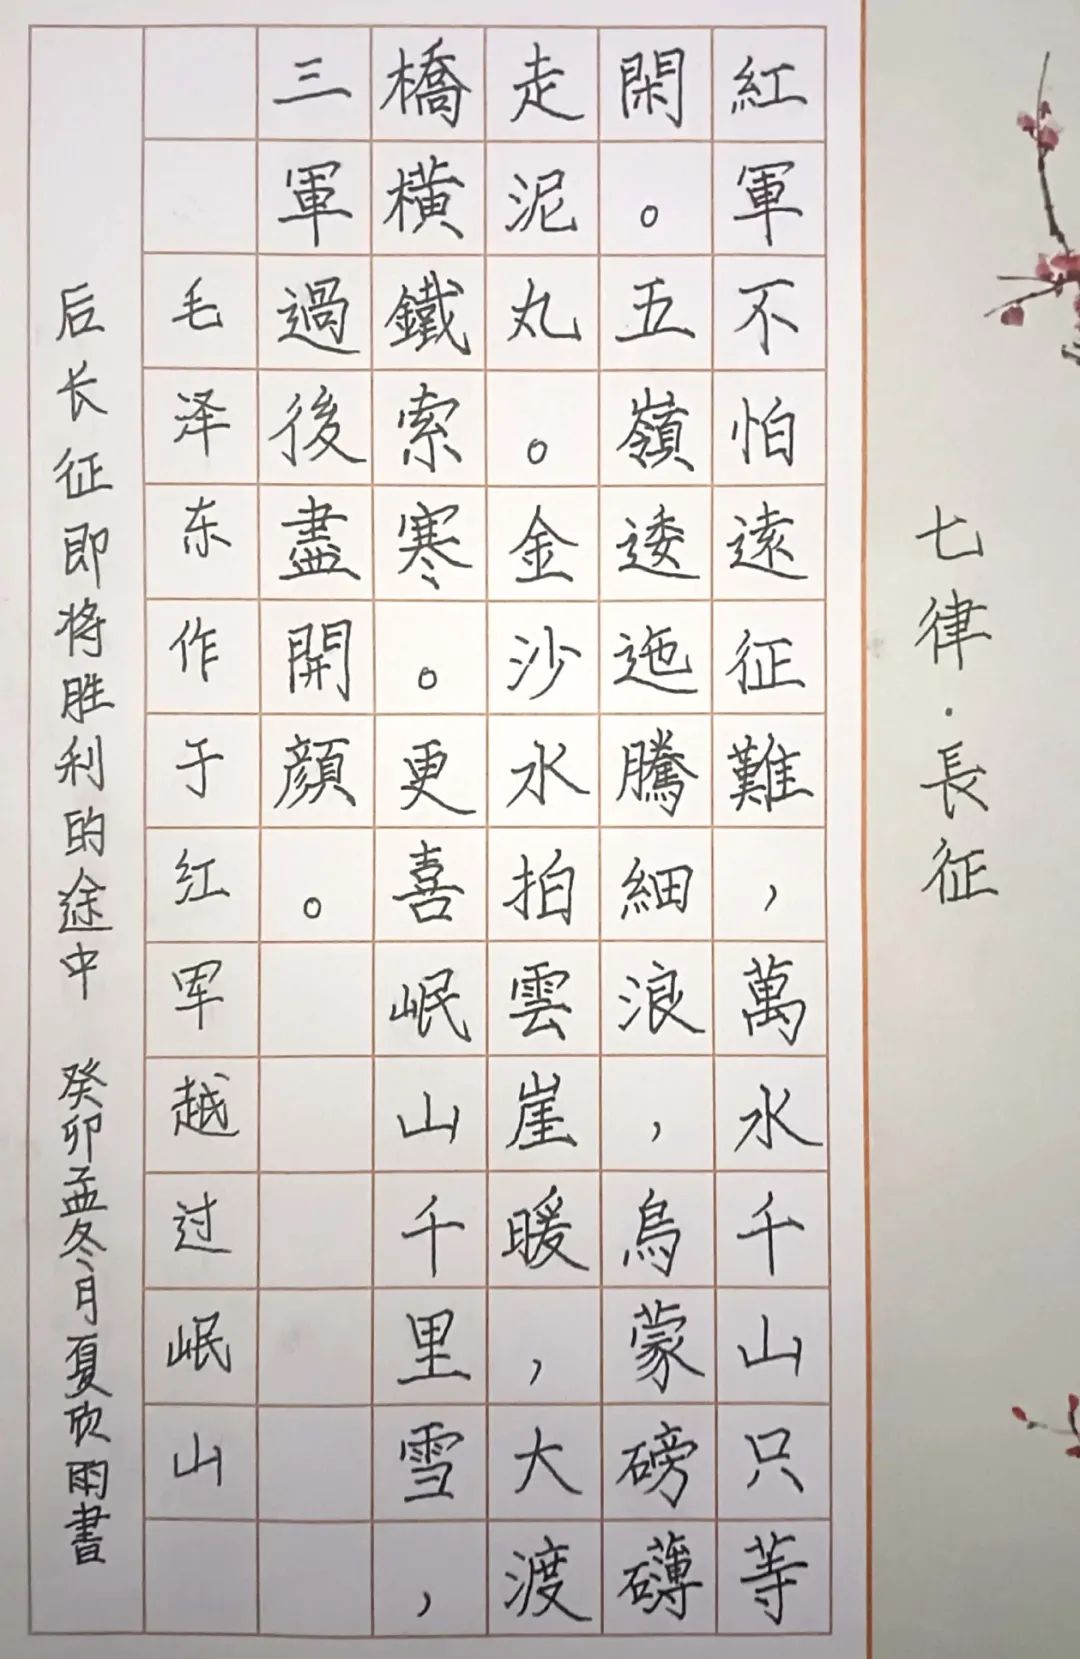 七律·長征
紅軍不怕遠征難，萬水千山只等
閑。五嶺逶迤騰細浪，烏蒙磅礴
走泥丸。金沙水拍雲崖暖，大渡
橋橫鐵索寒。更喜岷山千里雪，
三軍過後盡開顏。
毛泽东作于红军越过岷山
后长征即将胜利的途中 癸卯孟冬月夏欣雨書